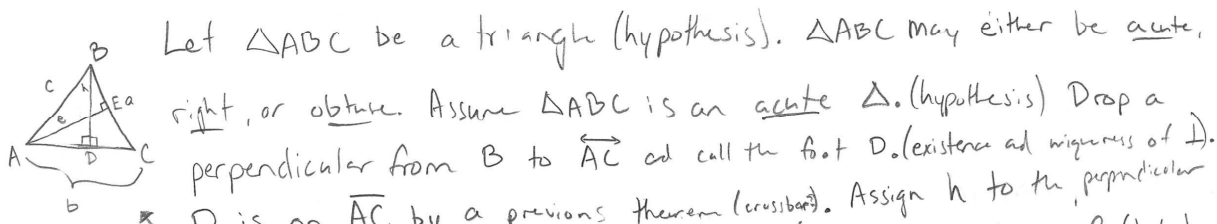 Let △ABC be a triangle (hypothesis). △ABC may either be acute,
right, or obtuse. Assume △ABC is an acute △. (hypothesis) Drop a
perpendicular from B to AC ad call the foot D. (existence ad uniqueness of ⊥).
* D is on AC by a previous theorem (crossbar?). Assign h to the perpendicular
B
c
h
E a
e
A
D
C
b